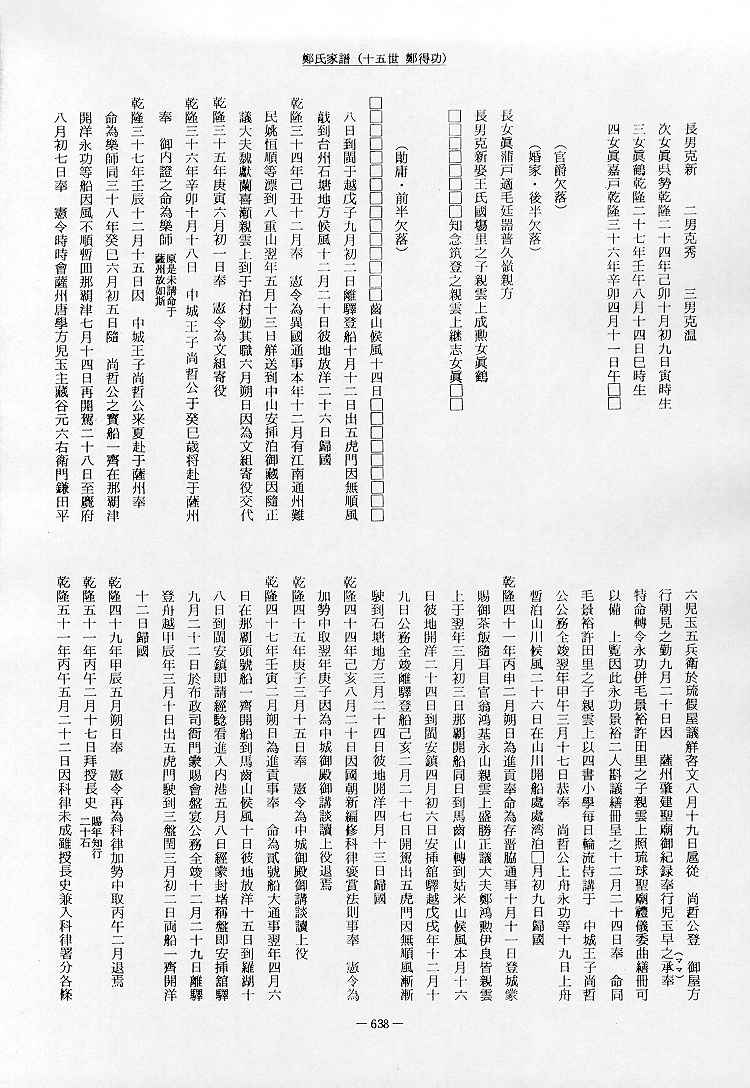 鄭氏家譜(十五世 鄭得功)
長男克新　二男克秀　三男克温
次女眞呉勢乾隆二十四年己卯十月初九日寅時生
三女眞鶴乾隆二十七年壬午八月十四日巳時生
四女眞嘉戸乾隆三十六年辛卯四月十一日午□□
(官爵欠落)
(婚家・後半欠落)
長女眞蒲戸適毛廷器普久嶺親方
長男克新娶王氏國塲里之子親雲上成勲女眞鶴
□□□□□□□知念筑登之親雲上継志女眞□□
(勛庸・前半欠落)
□□□□□□□□□□□□□齒山候風十四日□□□□□□□□□
八日到閩于越戊子九月初二日離驛登船十月十二日出五虎門因無順風
戧到台州石塘地方候風十二月二十日彼地放洋二十六日歸國
乾隆三十四年己丑十二月奉　憲令為異國通事本年十二月有江南通州難
民姚恒順等漂到八重山翌年五月十三日觧送到中山安挿泊御藏因隨正
議大夫魏献蘭喜漸親雲上到于泊村勤其職六月朔日因為文組寄役交代
乾隆三十五年庚寅六月初一日奉　憲令為文組寄役
乾隆三十六年辛卯十月十八日　中城王子尚哲公于癸巳歳将赴于薩州
奉　御内證之命為樂師 原是未請命于薩州故如斯
乾隆三十七年壬辰十二月十五日因　中城王子尚哲公来夏赴于薩州奉
命為樂師同三十八年癸巳六月初五日隨　尚哲公之寳船一齊在那覇津
開洋永功等船因風不順暫囬那覇津七月十四日再開駕二十八日至麑府
八月初七日奉　憲令時時會薩州唐學方児玉主藏谷元六右衛門鎌田平
六児玉五兵衛於琉假屋議觧咨文八月十九日扈從　尚哲公登　御屋方
行朝見之勤九月二十日因　薩州肇建聖廟御紀録奉行児玉早之承奉(ママ)
特命轉令永功併毛景裕許田里之子親雲上照琉球聖廟禮儀委曲繕冊可
以備　上覧因此永功景裕二人斟議繕冊呈之十二月二十四日奉　命同
毛景裕許田里之子親雲上以四書小學毎日輪流侍講于　中城王子尚哲
公公務全竣翌年甲午三月十七日恭奉　尚哲公上舟永功等十九日上舟
暫泊山川候風二十六日在山川開船處處湾泊□月初九日歸國
乾隆四十一年丙申二月朔日為進貢奉命為存畱脇通事十月十一日登城蒙
賜御茶飯隨耳目官翁鴻基永山親雲上盛勝正議大夫鄭鴻勲伊良皆親雲
上于翌年三月初三日那覇開船同日到馬齒山轉到姑米山候風本月十六
日彼地開洋二十四日到閩安鎮四月初六日安挿舘驛越戊戌年十二月十
九日公務全竣離驛登船己亥二月二十七日開駕出五虎門因無順風漸漸
駛到石塘地方三月二十四日彼地開洋四月十三日歸國
乾隆四十四年己亥八月二十日因國朝新編修科律褒賞法則事奉　憲令為
加勢中取翌年庚子因為中城御殿御講談讀上役退焉
乾隆四十五年庚子三月十五日奉　憲令為中城御殿御講談讀上役
乾隆四十七年壬寅二月朔日為進貢事奉　命為貳號船大通事翌年四月六
日在那覇頭號船一齊開船到馬齒山候風十日彼地放洋十五日到羅湖十
八日到閩安鎮即請經騐看進入内港五月八日經蒙封堵稱盤即安挿舘驛
九月二十二日於布政司衙門蒙賜會盤宴公務全竣十二月二十九日離驛
登舟越甲辰年三月十日出五虎門駛到三盤閏三月初二日両船一齊開洋
十二日歸國
乾隆四十九年甲辰五月朔日奉　憲令再為科律加勢中取丙午二月退焉
乾隆五十一年丙午二月十七日拜授長史 賜年知行二十石
乾隆五十一年丙午五月二十二日因科律未成雖授長史兼入科律署分各條
— 638 —